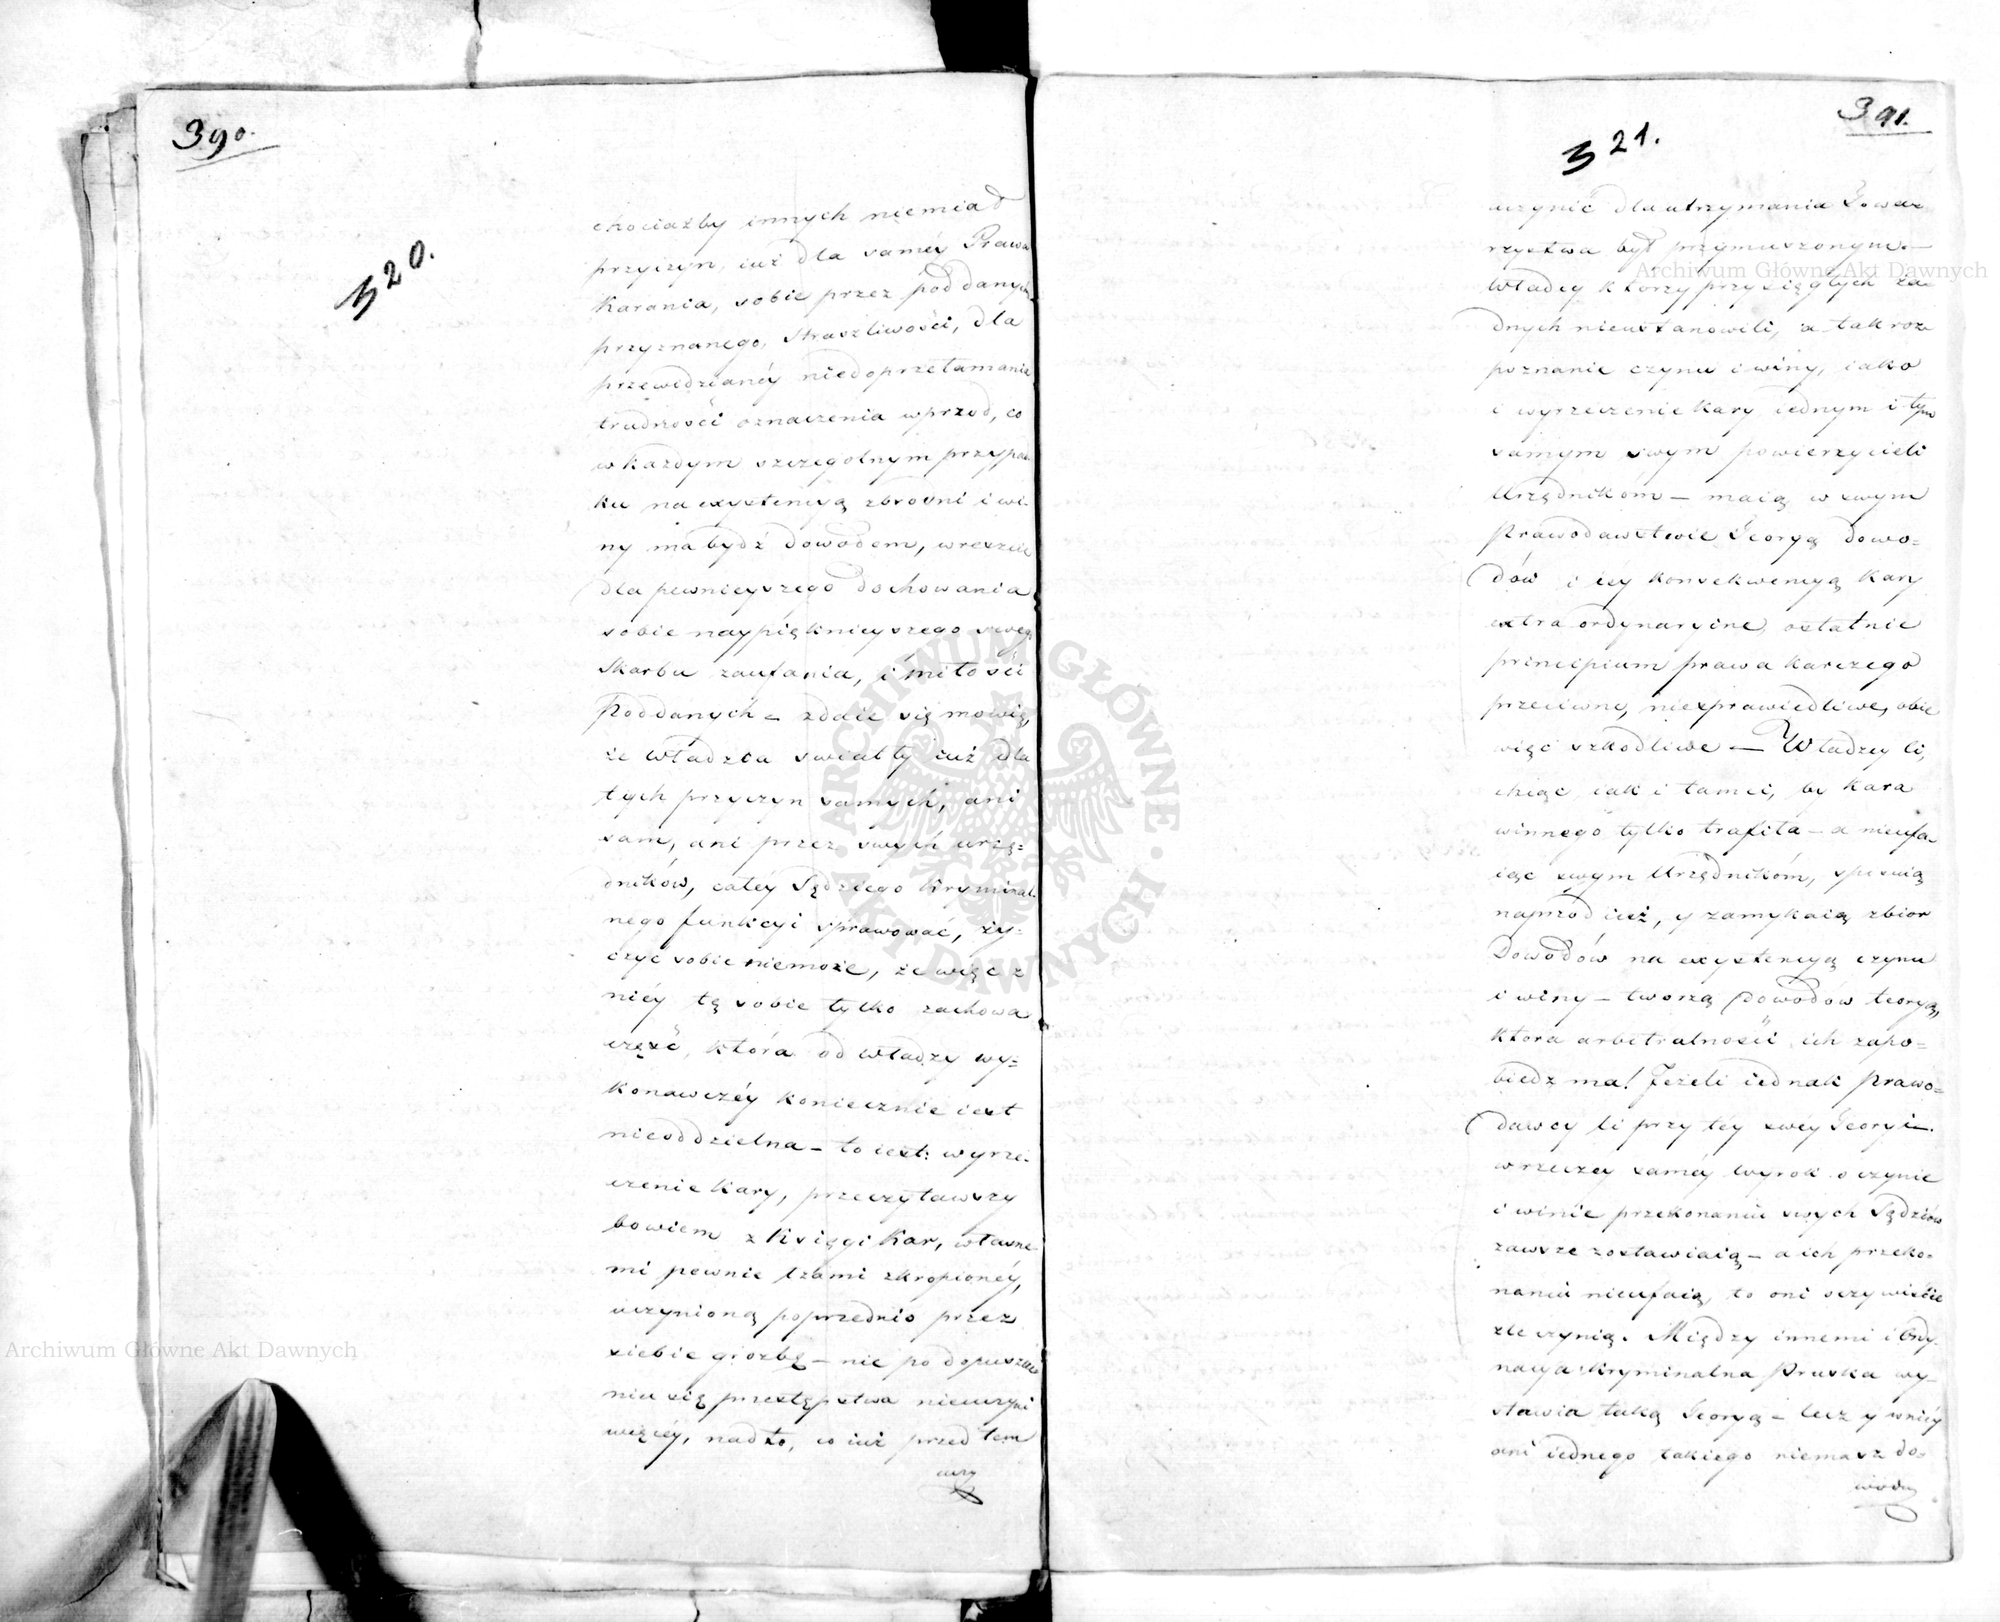 390.
320.
chociażby innych niemiał
przyczyn, iuż dla saméy Prawa
Karania, sobie przez poddanych
przyznanego, straszliwości, dla
przewidzianéy niedoprzełamania
trudności oznaczenia wprzod, co
w każdym szczegolnym przypad-
ku na exystencyą zbrodni i wi-
ny ma bydź dowodem, wreszcie
dla pewnieyszego dochowania
sobie naypięknieyszego swego
Skarbu zaufania, i miłości
Poddanych – zdaie się mowię,
że Władzca swiatły iuż dla
tych przyczyn samych, ani
sam, ani przez swych urzę=
dników, całéy Sędziego Kryminal-
nego funkcyi sprawować, ży=
czyć sobie niemoże, że więc z
niéy tę sobie tylko zachowa
część, która od władzy wy=
konawczéy koniecznie iest
nieoddzielna – to iest: wyrze-
czenie kary, przeczytawszy
bowiem z Księgi Kar, własne-
mi pewnie łzami skropionéy,
uczynioną poprzednio przez
siebie groźbę – nie po dopuszcze
niu się przestępstwa nieuczyni
więcéy, nadto, co iuż przed tem
uczy
391.
321.
uczynić dla utrzymania Towa=
rzystwa był przymuszonym. –
Władcy którzy przysięgłych ża=
dnych nieustanowili, a tak roz=
poznanie czynu i winy, iako
i wyrzeczenie kary iednym i tym
samym swym powierzycieli
Urzędnikom – maią w swym
Prawodawstwie Teoryą dowo=
dów i iéy konsekwencyą kary
extraordynaryine, ostatnie
principium prawa karczego
przeciwne, niesprawiedliwe, obie
więc szkodliwe – Władzcy ci,
chcąc iak i tamci, by kara
winnego tylko trafiła – a nieufa
iąc swym Urzędnikóm, spisuią
naprzod iuż, y zamykaią zbior
Dowodów na exystencyą czynu
i winy – tworzą dowodów teoryą,
ktora arbitralności ich zapo=
biedz ma! Jeżeli iednak Prawo=
dawcy ci przy téy swéy Teoryi –
w rzeczy saméy wyrok o czynie
i winie przekonaniu swych Sędziów
zawsze zostawiaią – a ich przeko-
naniu nieufaią, to oni oczywiście
źle czynią. Między innemi i Ordy-
nacya Kryminalna Pruska wy-
stawia taką Teoryą – lecz y w niéy
ani iednego takiego niemasz do=
wodu
Archiwum Główne Akt Dawnych
Archiwum Główne Akt Dawnych
ARCHIWUM GŁÓWNE · AKT DAWNYCH ·